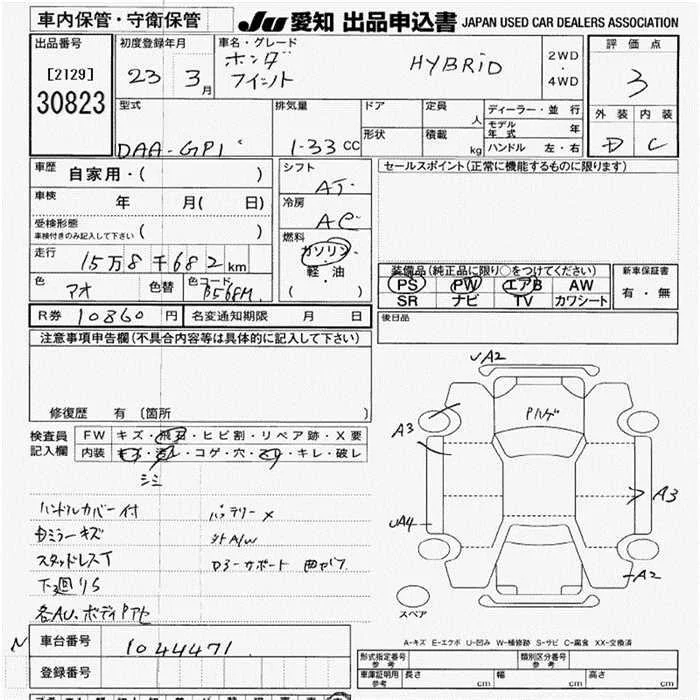 車内保管・守衛保管
JU 愛知 出品申込書 JAPAN USED CAR DEALERS ASSOCIATION
出品番号
[2129]
30823
初度登録年月
23 3月
車名・グレード
ホンダ
フィット
HYBRID
2WD
・
4WD
評価点
3
外装 内装
D C
型式
DAA-GP1
排気量
1.33 CC
ドア
形状
定員 人
積載 kg
ディーラー・並行
モデル年式 年
ハンドル 左・右
車歴 自家用・( )
車検 年 月( 日)
受検形態
車検付きのみ記入して下さい ( )
走行 15万8千682km
色 アオ 色替 色コード B568M
シフト AT
冷房 AC
燃料
ガソリン
・
軽・油
・
( )
セールスポイント(正常に機能するものに限ります)
装備品(純正品に限り○をつけてください)
PS PW エアB AW
SR ナビ TV カワシート
新車保証書
有・無
後日品
R券 10860 円 名変通知期限 月 日
注意事項申告欄(不具合内容等は具体的に記入して下さい)
修復歴 有 (箇所 )
検査員
記入欄
FW キズ・飛石・ヒビ割・リペア跡・X要
内装 キズ・汚レ・コゲ・穴・スリ・キレ・破レ
シミ
ハンドルカバー付
バッテリー×
内ミラーキズ
社外A/W
スタッドレスT
下廻りS
UA2
A3
A3
UA4
A2
スペア
A-キズ E-エクボ U-凹み W-補修跡 S-サビ C-腐食 XX-交換済
N
車台番号 1044471
登録番号
形式指定番号
参考
類別区分番号
参考
車庫証明用
参考
長さ cm 幅 cm 高さ cm